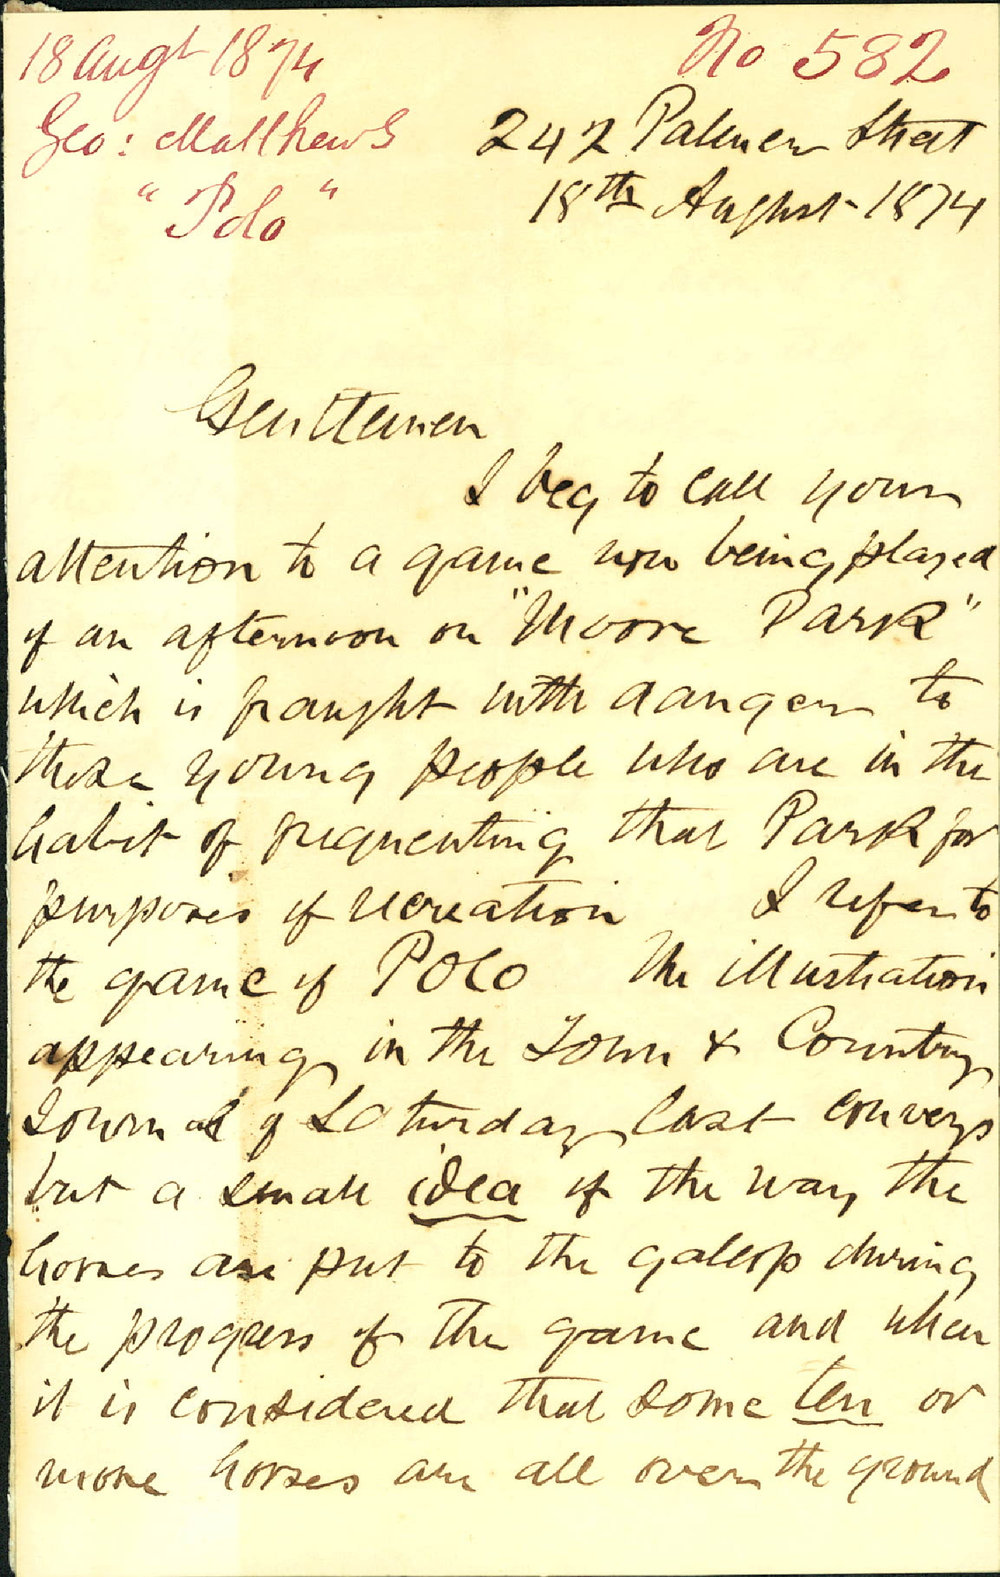 18 Augt 1874
No 582
Geo: Matthews
"Polo"
242 Palmer Street
18th August 1874
Gentlemen
I beg to call your
attention to a game now being played
of an afternoon on "Moore Park"
which is fraught with danger to
those young people who are in the
habit of frequenting that Park for
purposes of recreation I refer to
the game of Polo The illustration
appearing in the Town & Country
Journal of Saturday last conveys
but a small idea of the way the
horses are put to the gallop during
the progress of the game and when
it is considered that some ten or
more horses are all over the ground